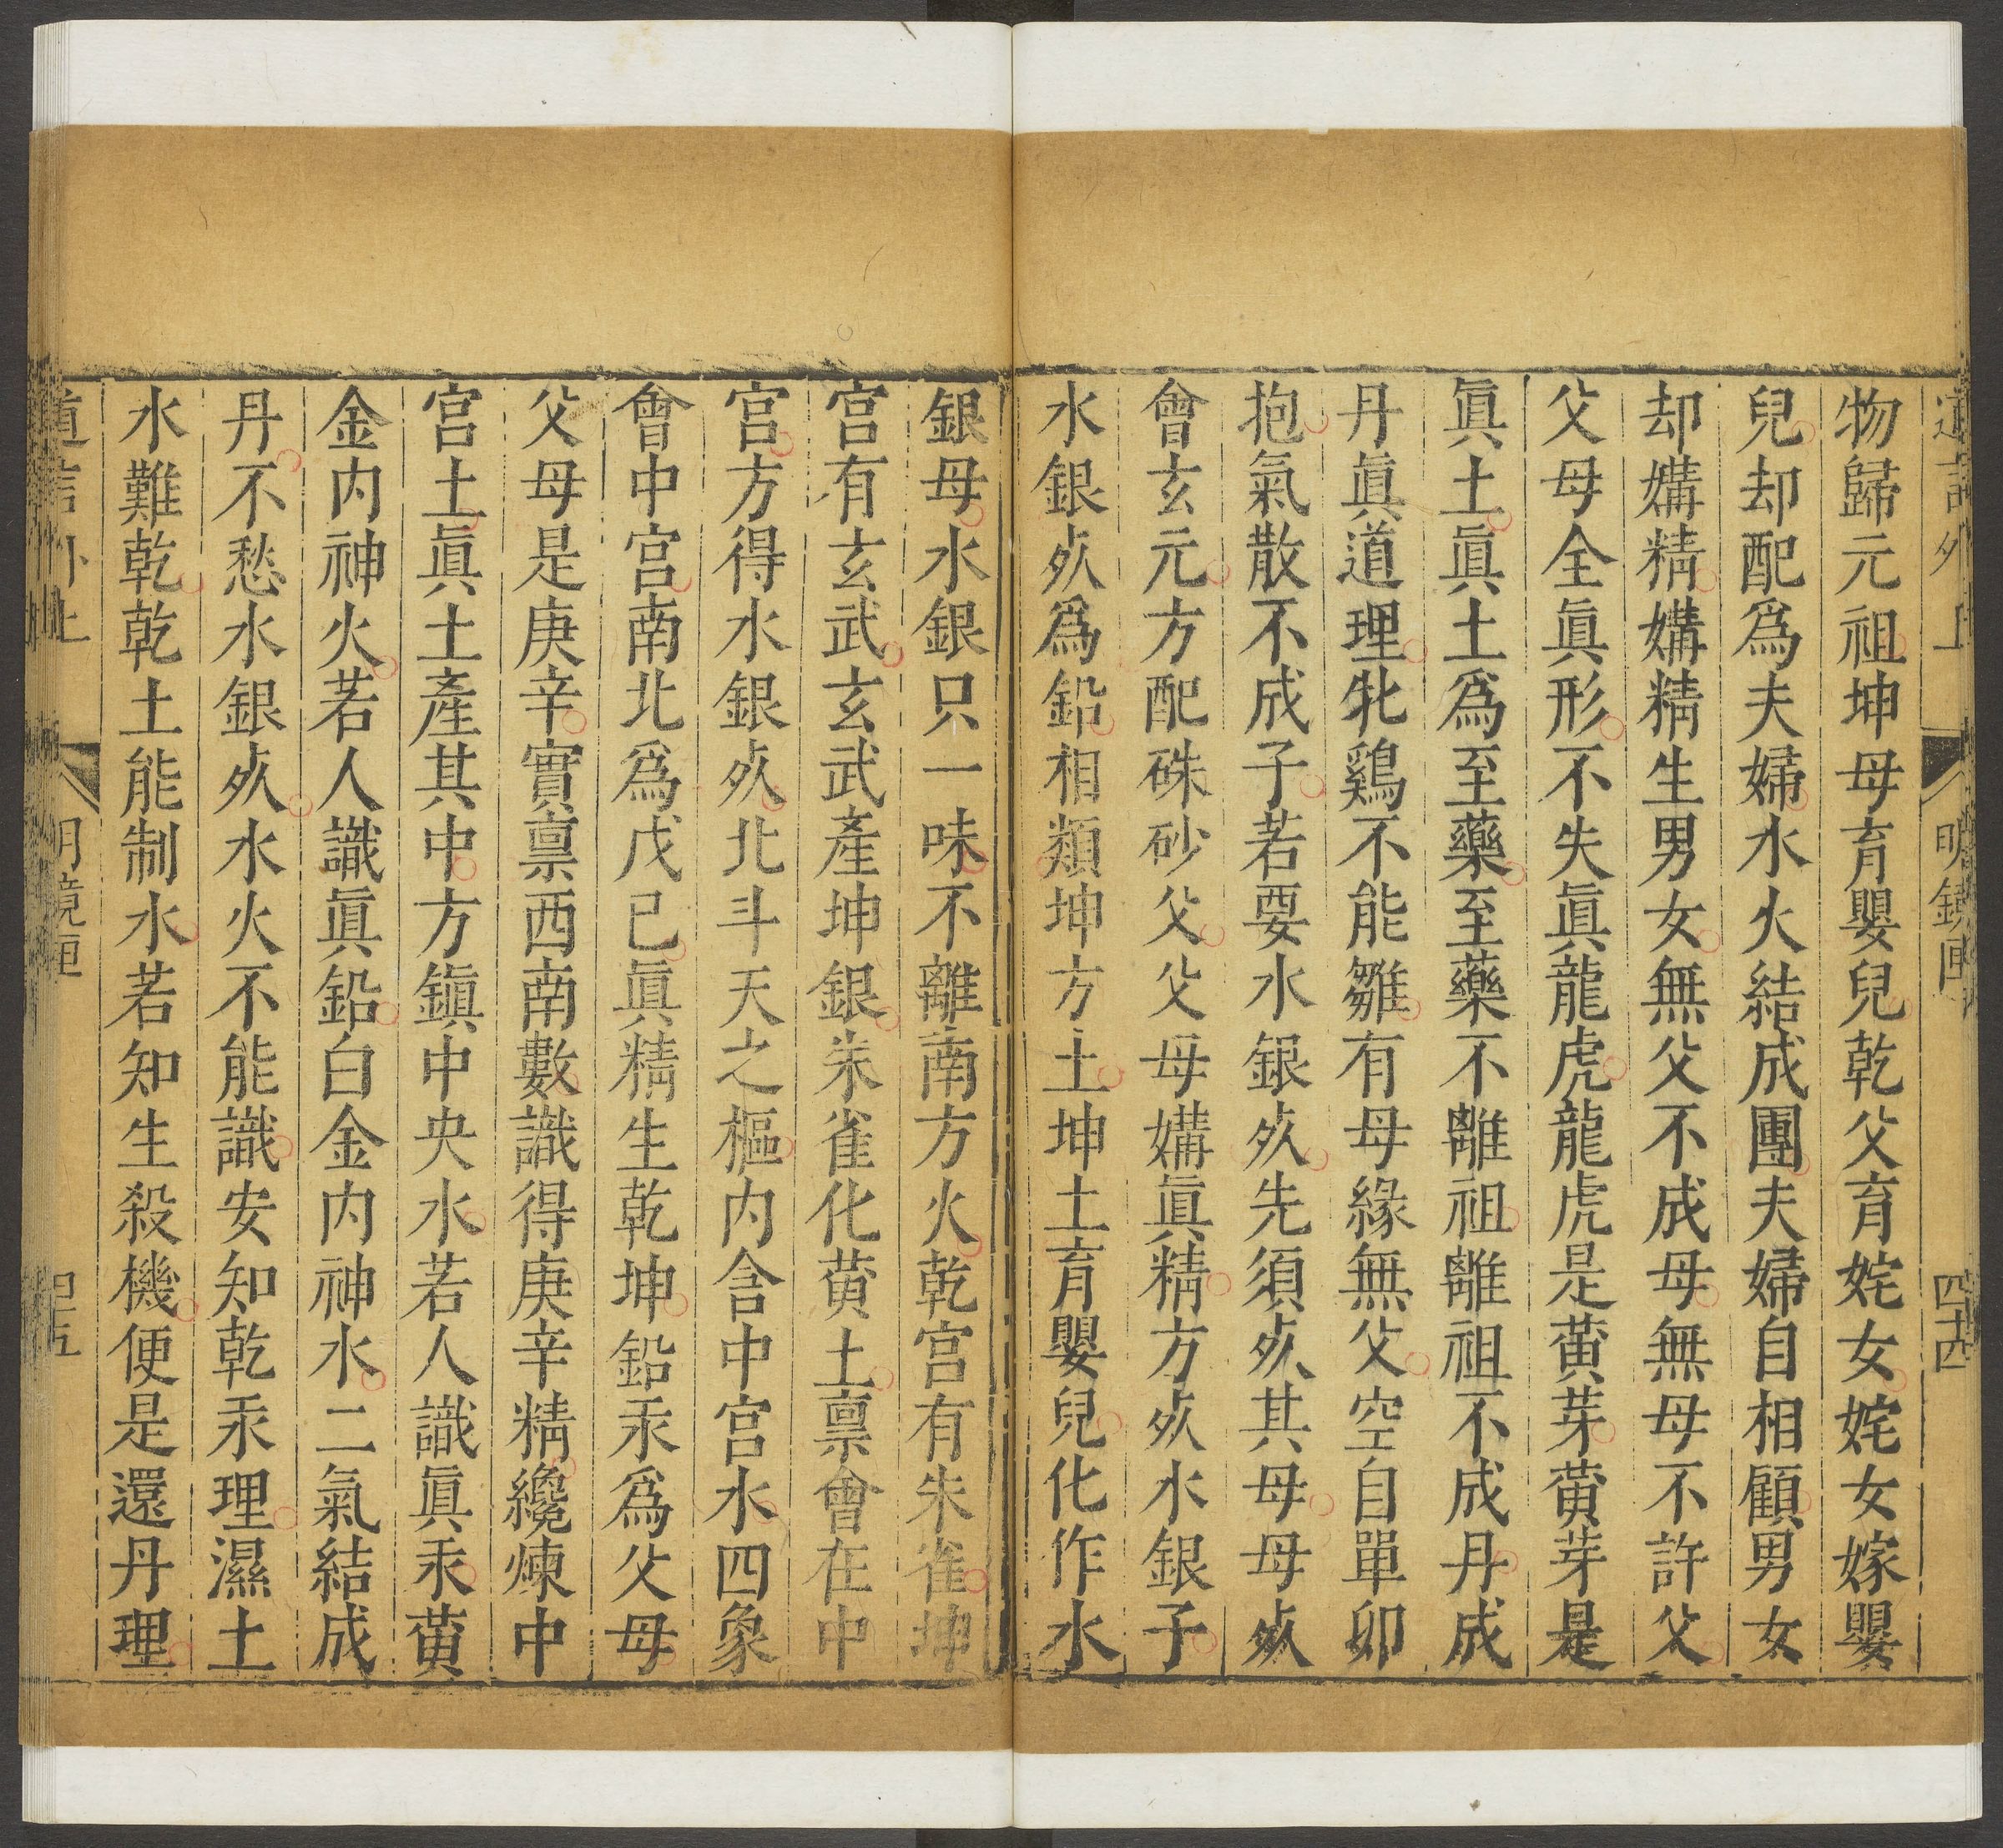 道言外 上 明鏡匣 四十四
物歸元祖坤母育嬰兒乾父育姹女姹女嫁嬰
兒却配爲夫婦水火結成團夫婦自相顧男女
却媾精媾精生男女無父不成母無母不許父
父母全眞形不失眞龍虎龍虎是黃芽黃芽是
眞土眞土爲至藥至藥不離祖離祖不成丹成
丹眞道理牝鷄不能雛有母緣無父空自單卵
抱氣散不成子若要水銀𣦸先須𣦸其母母𣦸
會玄元方配硃砂父父母媾眞精方𣦸水銀子
水銀𣦸爲鉛相類坤方土坤土育嬰兒化作水
銀母水銀只一味不離南方火乾宫有朱雀坤
宫有玄武玄武產坤銀朱雀化黃土禀會在中
宫方得水銀𣦸北斗天之樞内含中宫水四象
會中宫南北爲戊己眞精生乾坤鉛汞爲父母
父母是庚辛實禀西南數識得庚辛精纔煉中
宫土眞土產其中方鎭中央水若人識眞汞黃
金内神火若人識眞鉛白金内神水二氣結成
丹不愁水銀𣦸水火不能識安知乾汞理濕土
水難乾乾土能制水若知生殺機便是還丹理
道言外上 明鏡匣 四十五